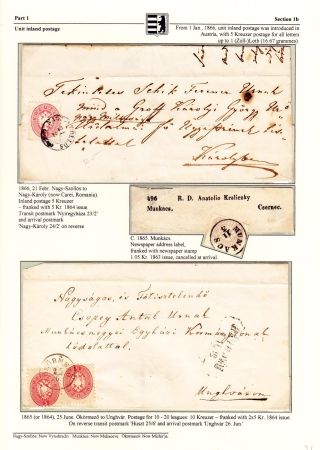 Part 1
Section 1b
Unit inland postage
From 1 Jan., 1866, unit inland postage was introduced in
Austria, with 5 Kreuzer postage for all letters
up to 1 (Zoll-)Loth (16.67 grammes)
Tekintetes Schik Ferencz Urnak
mind a Groff Károlyi György Úr
Károlyban
1866, 21 Febr. Nagy-Szőllős to
Nagy-Károly (now Carei, Romania).
Inland postage 5 Kreuzer
– franked with 5 Kr. 1864 issue
Transit postmark 'Nyiregyháza 23/2'
and arrival postmark
'Nagy-Károly 24/2' on reverse
496 R. D. Anatolio Kraliczky
Munkács. Csernec.
MUNKÁCS
C. 1865. Munkács.
Newspaper address label,
franked with newspaper stamp
1.05 Kr. 1863 issue, cancelled at arrival
Nagyságos, és Főtisztelendő
Csopey Antal Urnak
Munkácsmegyei Egyházi Kormány
Unghváron
1865 (or 1864), 25 June. Ökörmező to Unghvár. Postage for 10 - 20 leagues: 10 Kreuzer – franked with 2x5 Kr. 1864 issue
On reverse transit postmark 'Huszt 25/6' and arrival postmark 'Unghvár 26 Jun.'
Nagy-Szőllős: Now Vynohradiv. Munkács: Now Mukacseve. Ökörmező: Now Mizhir'ja.